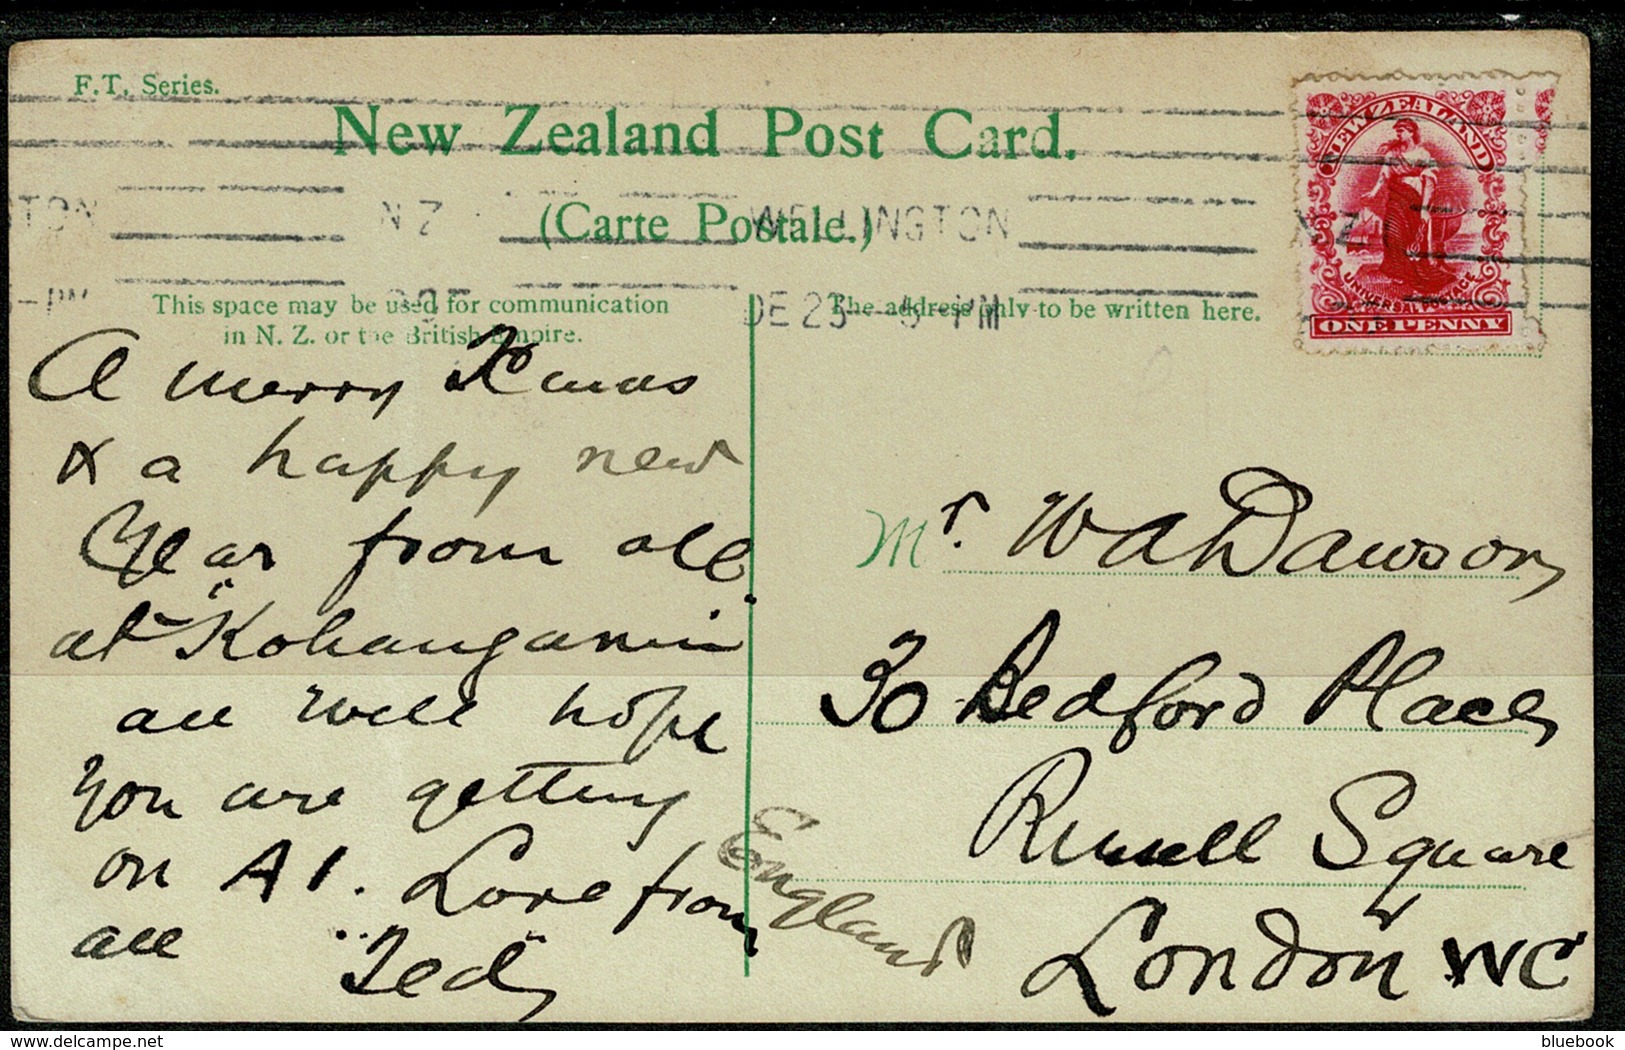 F.T. Series.
New Zealand Post Card.
(Carte Postale.)
NEW ZEALAND
UNIVERSAL POSTAGE
ONE PENNY
N Z
WELLINGTON
N Z
DE 23
PM
This space may be used for communication
in N. Z. or the British Empire.
The address only to be written here.
A merry Xmas
& a happy new
Year from all
at "Kohanganui"
all well hope
you are getting
on A1. Love from
all "Ted"
Mr. W A Dawson
30 Bedford Place
Russell Square
London WC
England
delcampe.net
bluebook